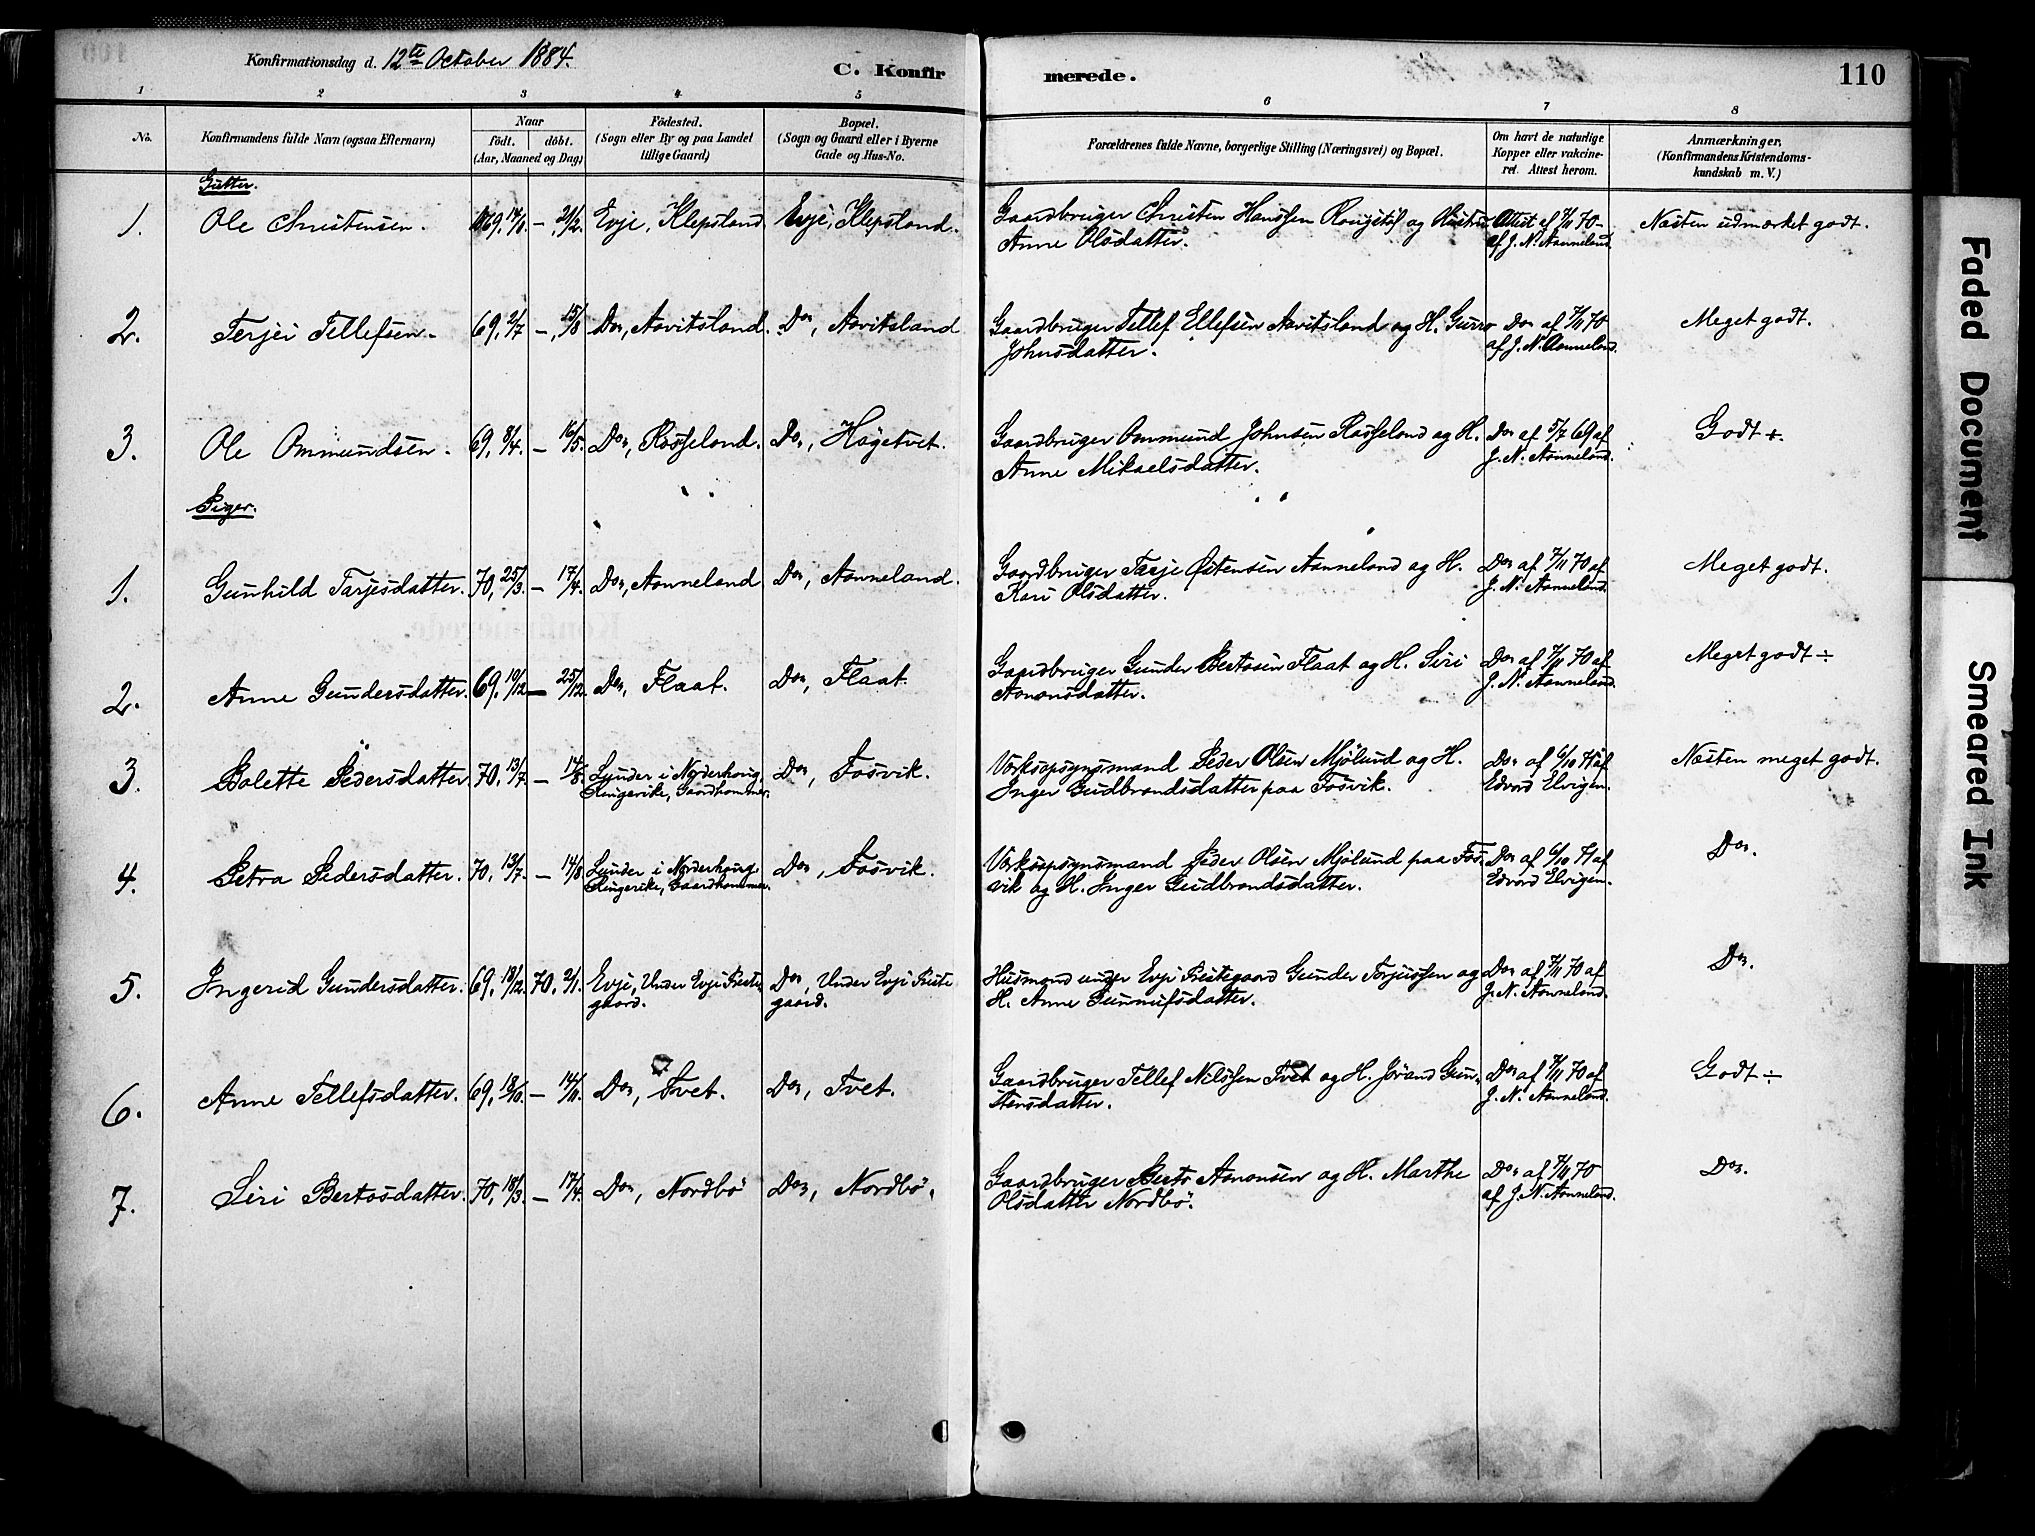 Konfirmationsdag d. 12te October 1884.
C. Konfirmerede.
110
1 2 3 4 5 6 7 8
No. Konfirmandens fulde Navn (ogsaa Efternavn)
Naar født. døbt. (Aar, Maaned og Dag)
Fødested. (Sogn eller By og paa Landet tillige Gaard)
Bopæl. (Sogn og Gaard eller i Byerne Gade og Hus-No.
Forældrenes fulde Navne, borgerlige Stilling (Næringsvei) og Bopæl.
Om havt de naturlige Kopper eller vakcineret. Attest herom.
Anmærkninger, (Konfirmandens Kristendomskundskab m. V.)
Gutter.
1. Ole Christensen. 69, — 21/2. Evje, Klepsland. Evje, Klepsland. Gaardbruger Christen Hanssen og Hustru Attest af 7/11 70 Næsten udmærket godt.
Anne Olsdatter. af J. N. Aanneland.
2. Terjei Tellefsen. 69, 2/7 — 15/8 Do, Aavitsland. Do, Aavitsland Gaardbruger Tellef Ellefsen Aavitsland og H. Gurro Do af 7/11 70 Meget godt.
Johnsdatter. af J. N. Aanneland.
3. Ole Ommundsen. 69, 8/4. — 16/5. Do, Rosseland. Do, Høgetvet. Gaardbruger Ommund Johnsen Rosseland og H. Do af 5/7 69 af Godt +.
Anne Mikaelsdatter. J. N. Aanneland.
Piger.
1. Gunhild Tarjesdatter. 70, 25/3. — 17/4. Do, Aanneland Do, Aanneland. Gaardbruger Tarje Østensen Aanneland og H. Do af 7/11 70 af Meget godt.
Kari Olsdatter. J. N. Aanneland.
2. Anne Gundersdatter. 69, 10/12 — 25/12. Do, Flaat. Do, Flaat. Gaardbruger Gunder Bertosen Flaat og H. Siri Do af 7/11 70 af Meget godt ÷
Aanonsdatter. J. N. Aanneland.
3. Bolette Pedersdatter. 70, 13/7. — 14/8. Lunder i Norderhoug, Do, Fosvik. Værksopsynsmand Peder Olsen Mjølund og H. Do af 6/10 71 af Næsten meget godt.
Ringerike, Inger Gudbrandsdatter paa Fosvik. Edvard Elvigen.
4. Petra Pedersdatter. 70, 13/7. — 14/8 Lunder i Norderhoug, Do, Fosvik. Værksopsynsmand Peder Olsen Mjølund paa Fos- Do af 6/10 71 af Do.
Ringerike, vik og H. Inger Gudbrandsdatter. Edvard Elvigen.
5. Ingerid Gundersdatter. 69, 18/12. 70. 2/1. Evje, Under Evje Preste- Do, Under Evje Preste Husmand under Evje Prestegaard Gunder Torjussen og Do af 7/11 70 af Do.
gaard. gaard. H. Anne Gunnufsdatter. J. N. Aanneland.
6. Anne Tellefsdatter. 69, 18/10. — 14/11. Do, Tvet. Do, Tvet. Gaardbruger Tellef Nilssen Tvet og H. Jørand Gun- Do af 7/11 70 af Godt ÷
stensdatter. J. N. Aanneland.
7. Siri Bertosdatter. 70, 18/3. — 17/4. Do, Nordbø Do, Nordbø. Gaardbruger Berto Aanonsen og H. Marthe Do af 7/11 70 Do.
Olsdatter Nordbø. af J. N. Aanneland.
Faded Document
Smeared Ink